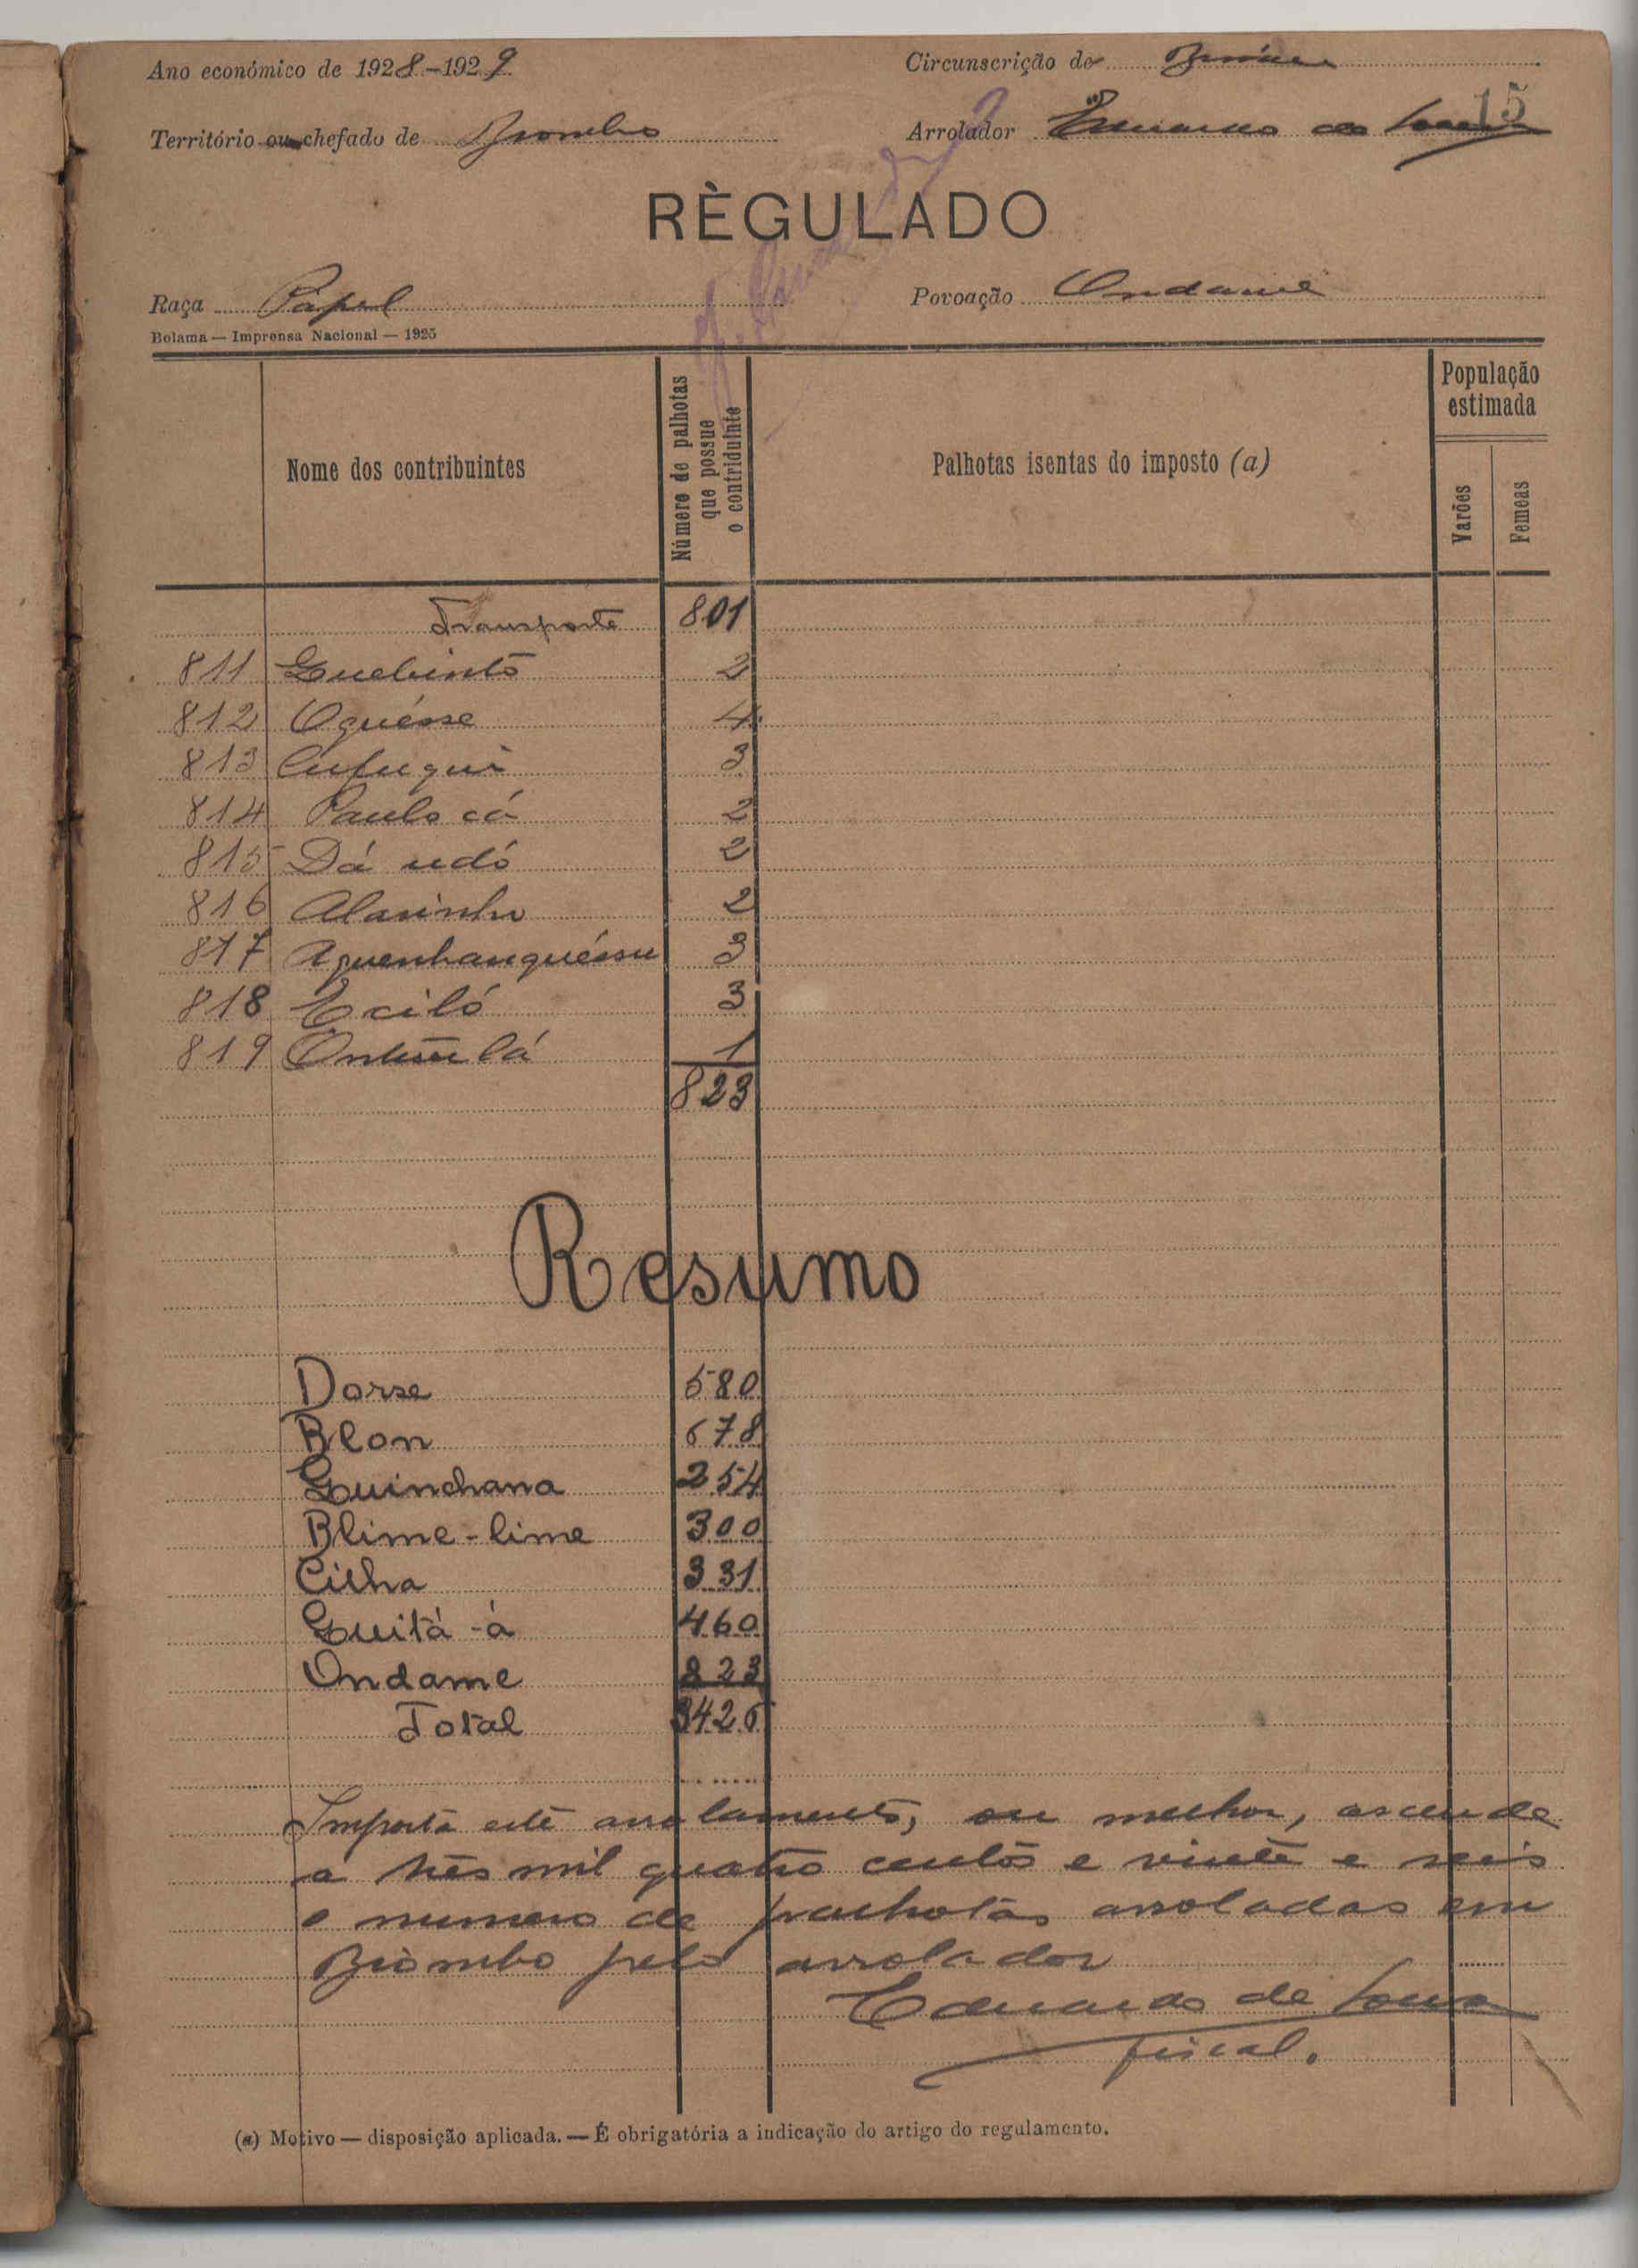 Ano económico de 1928-1929
Circunscrição de
15
Território ou chefado de Biombo
Arrolador Eduardo de Sousa
RÈGULADO
Raça Papel
Povoação Ondame
Bolama — Imprensa Nacional — 1925
Nome dos contribuintes
Número de palhotas que possue o contriduinte
Palhotas isentas do imposto (a)
População estimada
Varões
Femeas
Transporte 801
811 Guebinto 2
812 Oquésse 4
813 Cufuqui 3
814 Paulo có 2
815 Dá udó 2
816 Alasinho 2
817 Aguenhanquéssu 3
818 Eciló 3
819 lá 1
823
Resumo
Dorse 580
Blon 678
Guinchana 254
Blime-lime 300
Cilha 331
Guitá-á 460
Ondame 823
Total 3426
Importa este arrolamento, ou melhor, ascende
a três mil quatro centos e vinte e seis
o numero de palhotas arroladas em
Biombo pelo arrolador
Eduardo de Sousa
fiscal.
(a) Motivo — disposição aplicada. — É obrigatória a indicação do artigo do regulamento.